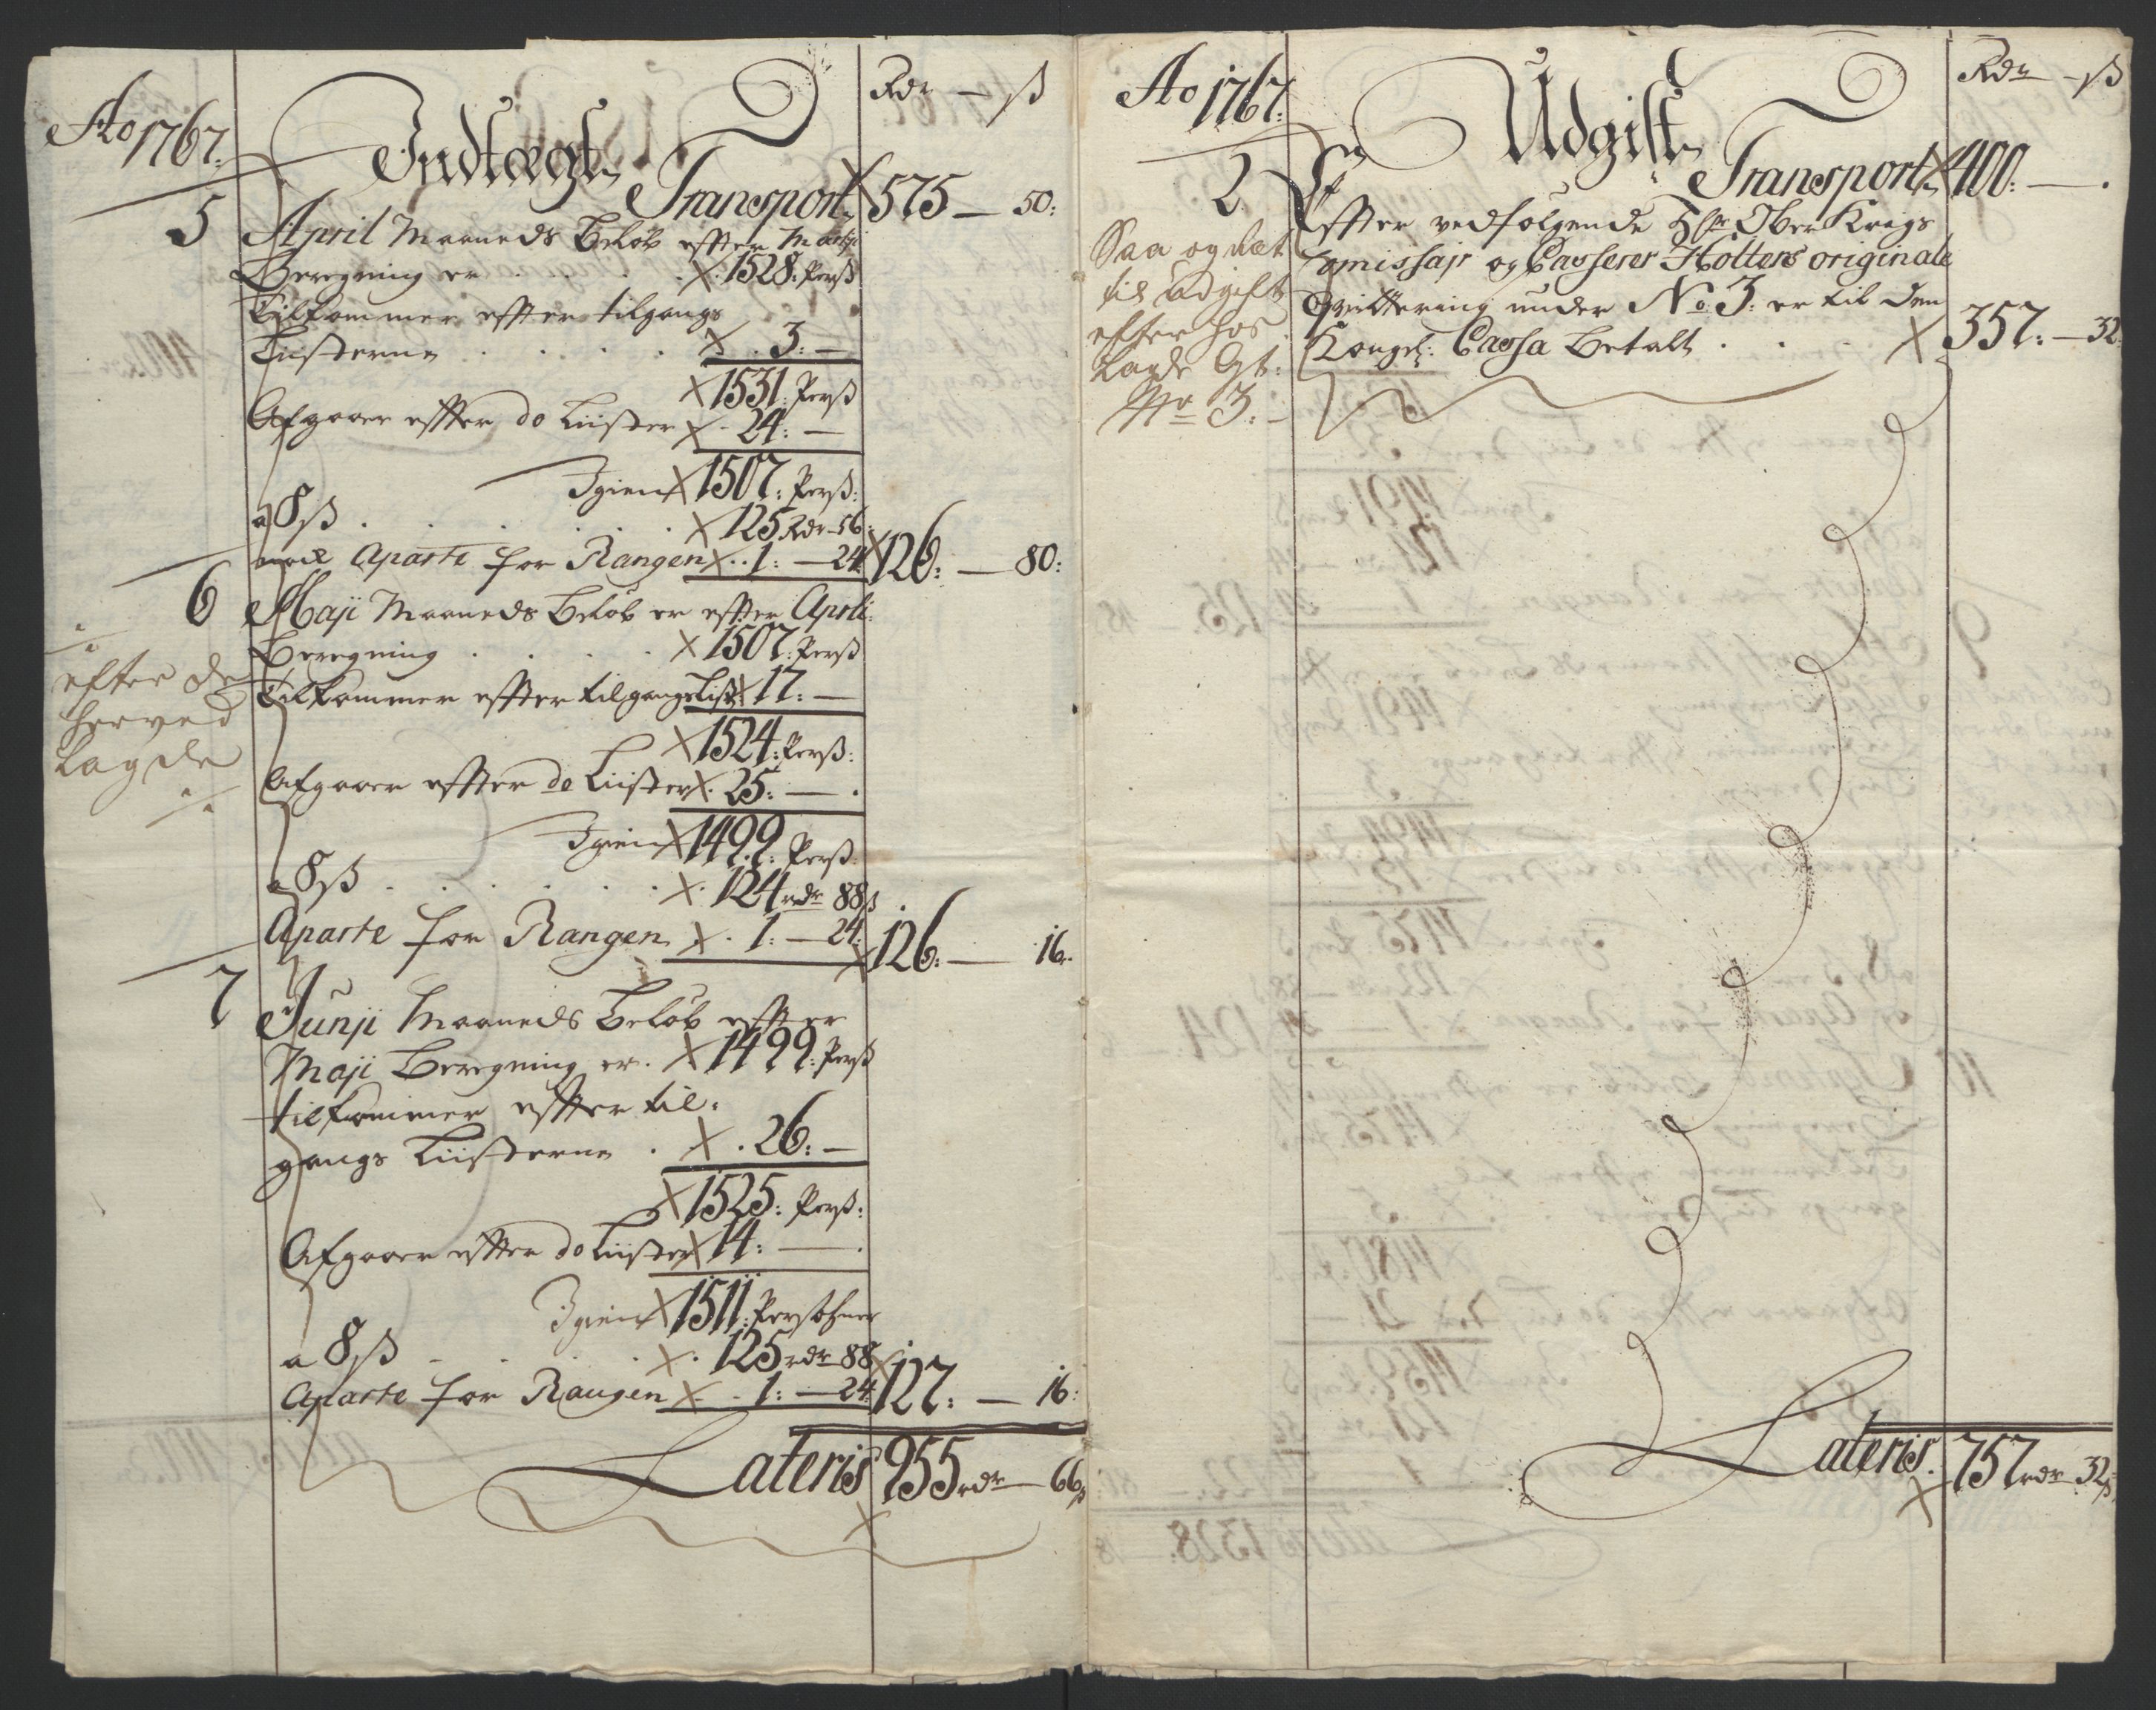 Ao 1767.
Indtægt
Rdr — ß
Transport 575 — 50:
5 April Maaneds Beløb effter Martji
Beregning er . . . . 1528: Perß
Tilkommer effter tilgangs
Liisterne . . . . 3: —
1531: Perß
Afgaaer effter do Liister 24: —
Igien 1507: Perß:
a 8 ß . . . . . . 125 Rdr — 56:
Aparte for Rangen 1: — 24 126: — 80:
6 Maji Maaneds Beløb er effter Aprli:
Beregning . . . . 1507: Perß
Tilkommer effter tilgangs List 17: —
1524: Perß:
Afgaaer effter do Liister 25: —
Igien 1499: Perß:
a 8 ß . . . . . . 124 rdr 88 ß
Aparte for Rangen 1: — 24: 126: — 16.
efter de
herved
lagde
7 Junji Maaneds Beløb effter
Maji Beregning er . 1499: Perß
tilkommer effter til-
gangs Liisterne . 26: —
1525: Perß:
Afgaaer effter do Liister 14: —
Igien 1511: Persohner
a 8 ß . . . . 125 rdr 88
Aparte for Rangen 1: — 24: 127: — 16:
Lateris 955 rdr — 66 ß
Ao 1767:
Udgift
Rdr — ß
Transport 400: — .
2. Effter vedfølgende Hr Ober Krigs
Comissajr og Casserer Holters originale
Qvittering under No 3: er til den
Kongel: Cassa Betalt . . . 357: — 32:
Saa og læt
til udgift
efter hos
lagde Qt:
No 3: —
Lateris. 757 rdr 32 ß